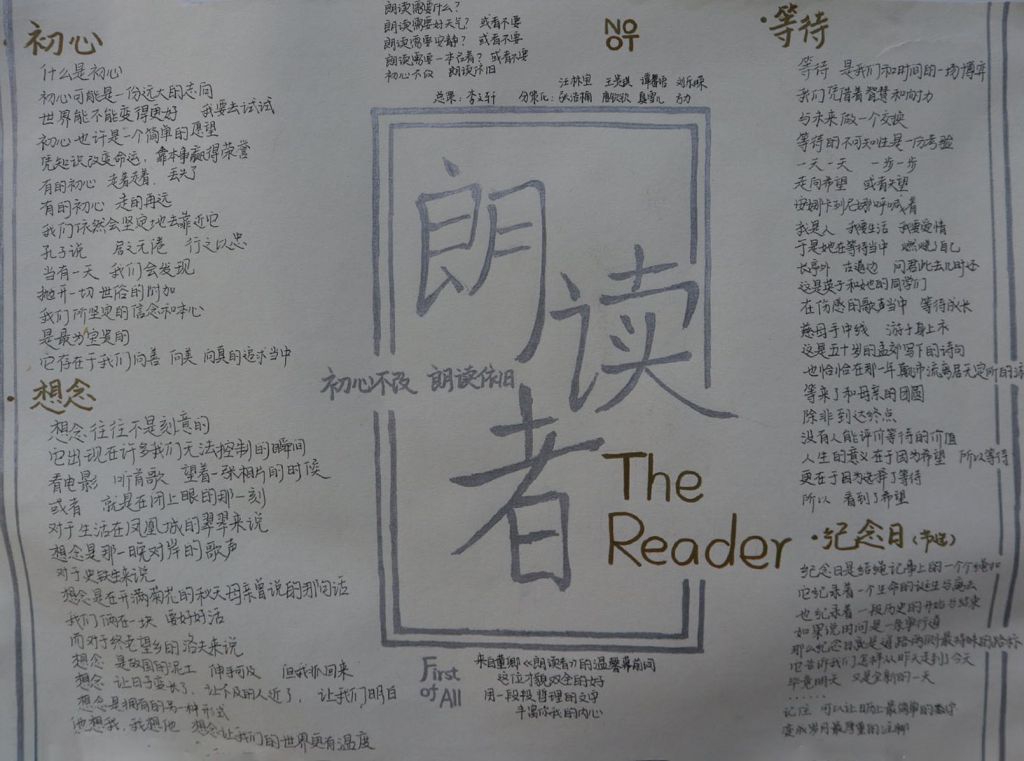 初心
什么是初心
初心可能是一份远大的志向
世界能不能变得更好 我要去试试
初心也许是一个简单的愿望
凭知识改变命运，靠本事赢得荣誉
有的初心 走着走着，丢失了
有的初心 走的再远
我们依然会坚定地去靠近它
孔子说 居之无倦 行之以忠
当有一天 我们会发现
抛开一切世俗的附加
我们所坚定的信念和本心
是最为宝贵的
它存在于我们向善 向美 向真的追求当中
想念
想念往往不是刻意的
它出现在许多我们无法控制的瞬间
看电影 听首歌 望着一张相片的时候
或者 就是在闭上眼的那一刻
对于生活在凤凰城的翠翠来说
想念是那一晚对岸的歌声
对于史铁生来说
想念是在开满菊花的秋天母亲曾说的那句话
我们俩在一块 要好好活
而对于终老望乡的洛夫来说
想念 是故国的泥土 伸手可及 但我抓回来
想念 让日子变长了，让不及的人近了， 让我们明白
想念是拥有的另一种形式
他想我，我想他 想念让我们的世界更有温度
朗读需要什么？
朗读需要好天气？ 或者不要
朗读需要安静？ 或者不要
朗读需要一本活着？ 或者不要
初心不改 朗读依旧
NO
OT
总策：李文轩
朗读者
初心不改 朗读依旧
The
Reader
First
of All
来自董卿《朗读者》的温馨幕前问
这位才貌双全的好
用一段段哲理的文字
丰富你我的内心
等待
等待 是我们和时间的一场博弈
我们凭借着智慧和耐力
与未来做一个交换
等待的不可知性是一份考验
一天一天 一步一步
走向希望 或者失望
安娜卡列尼娜呼喊着
我是人 我要生活 我要爱情
于是她在等待当中 燃烧了自己
长亭外 古道边 问君此去几时还
这是英子和她的同学们
在伤感的歌声当中 等待成长
慈母手中线 游子身上衣
这是五十岁的孟郊写下的诗句
也恰恰在那一年颠沛流离居无定所的
等来了和母亲的团圆
除非到达终点
没有人能评价等待的价值
人生的意义在于因为希望 所以等待
更在于因为选择了等待
所以 看到了希望
纪念日
纪念日是结绳记事上的一个个绳扣
它纪录着一个生命的诞生与离去
也纪录着一段历史的开始与结束
如果说时间是一条单行道
那么纪念日就是道路两侧最特殊的路标
它告诉我们怎样从昨天走到了今天
毕竟明天 又是全新的一天
......
记住 可以让日历上最简单的数字
变成岁月最厚重的注脚